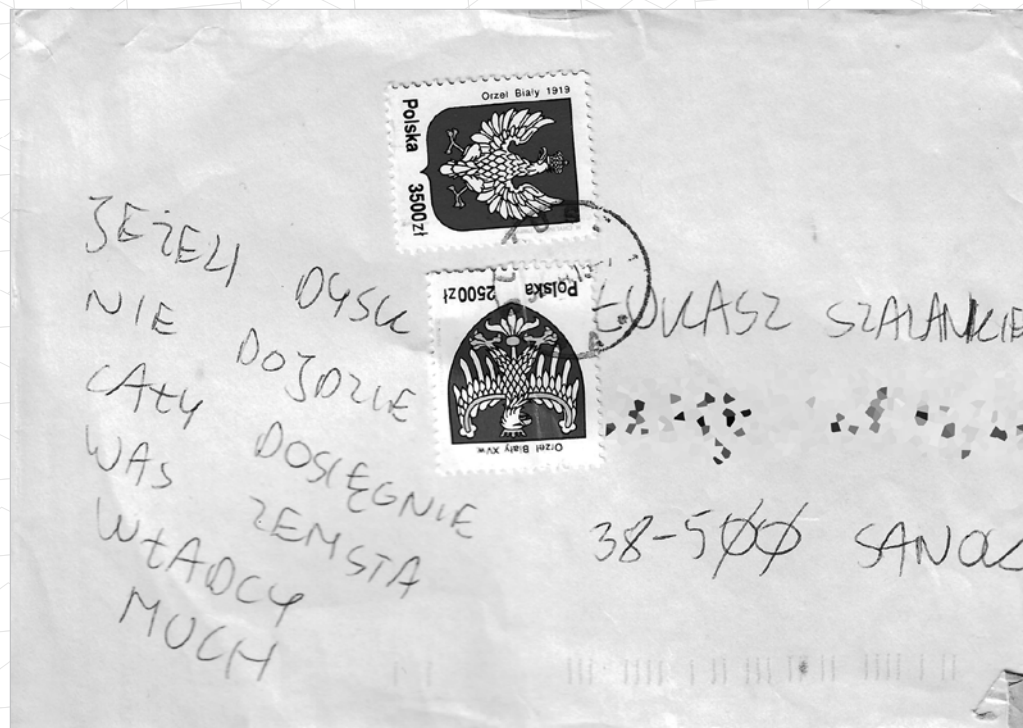 Orzeł Biały 1919
Polska 3500zł
Polska 2500zł
Orzeł Biały XVw.
JEŻELI DYSK
NIE DOJDZIE
CAŁY DOSIĘGNIE
WAS ZEMSTA
WŁADCY
MUCH
ŁUKASZ SZAŁANKIE
38-500 SANOK